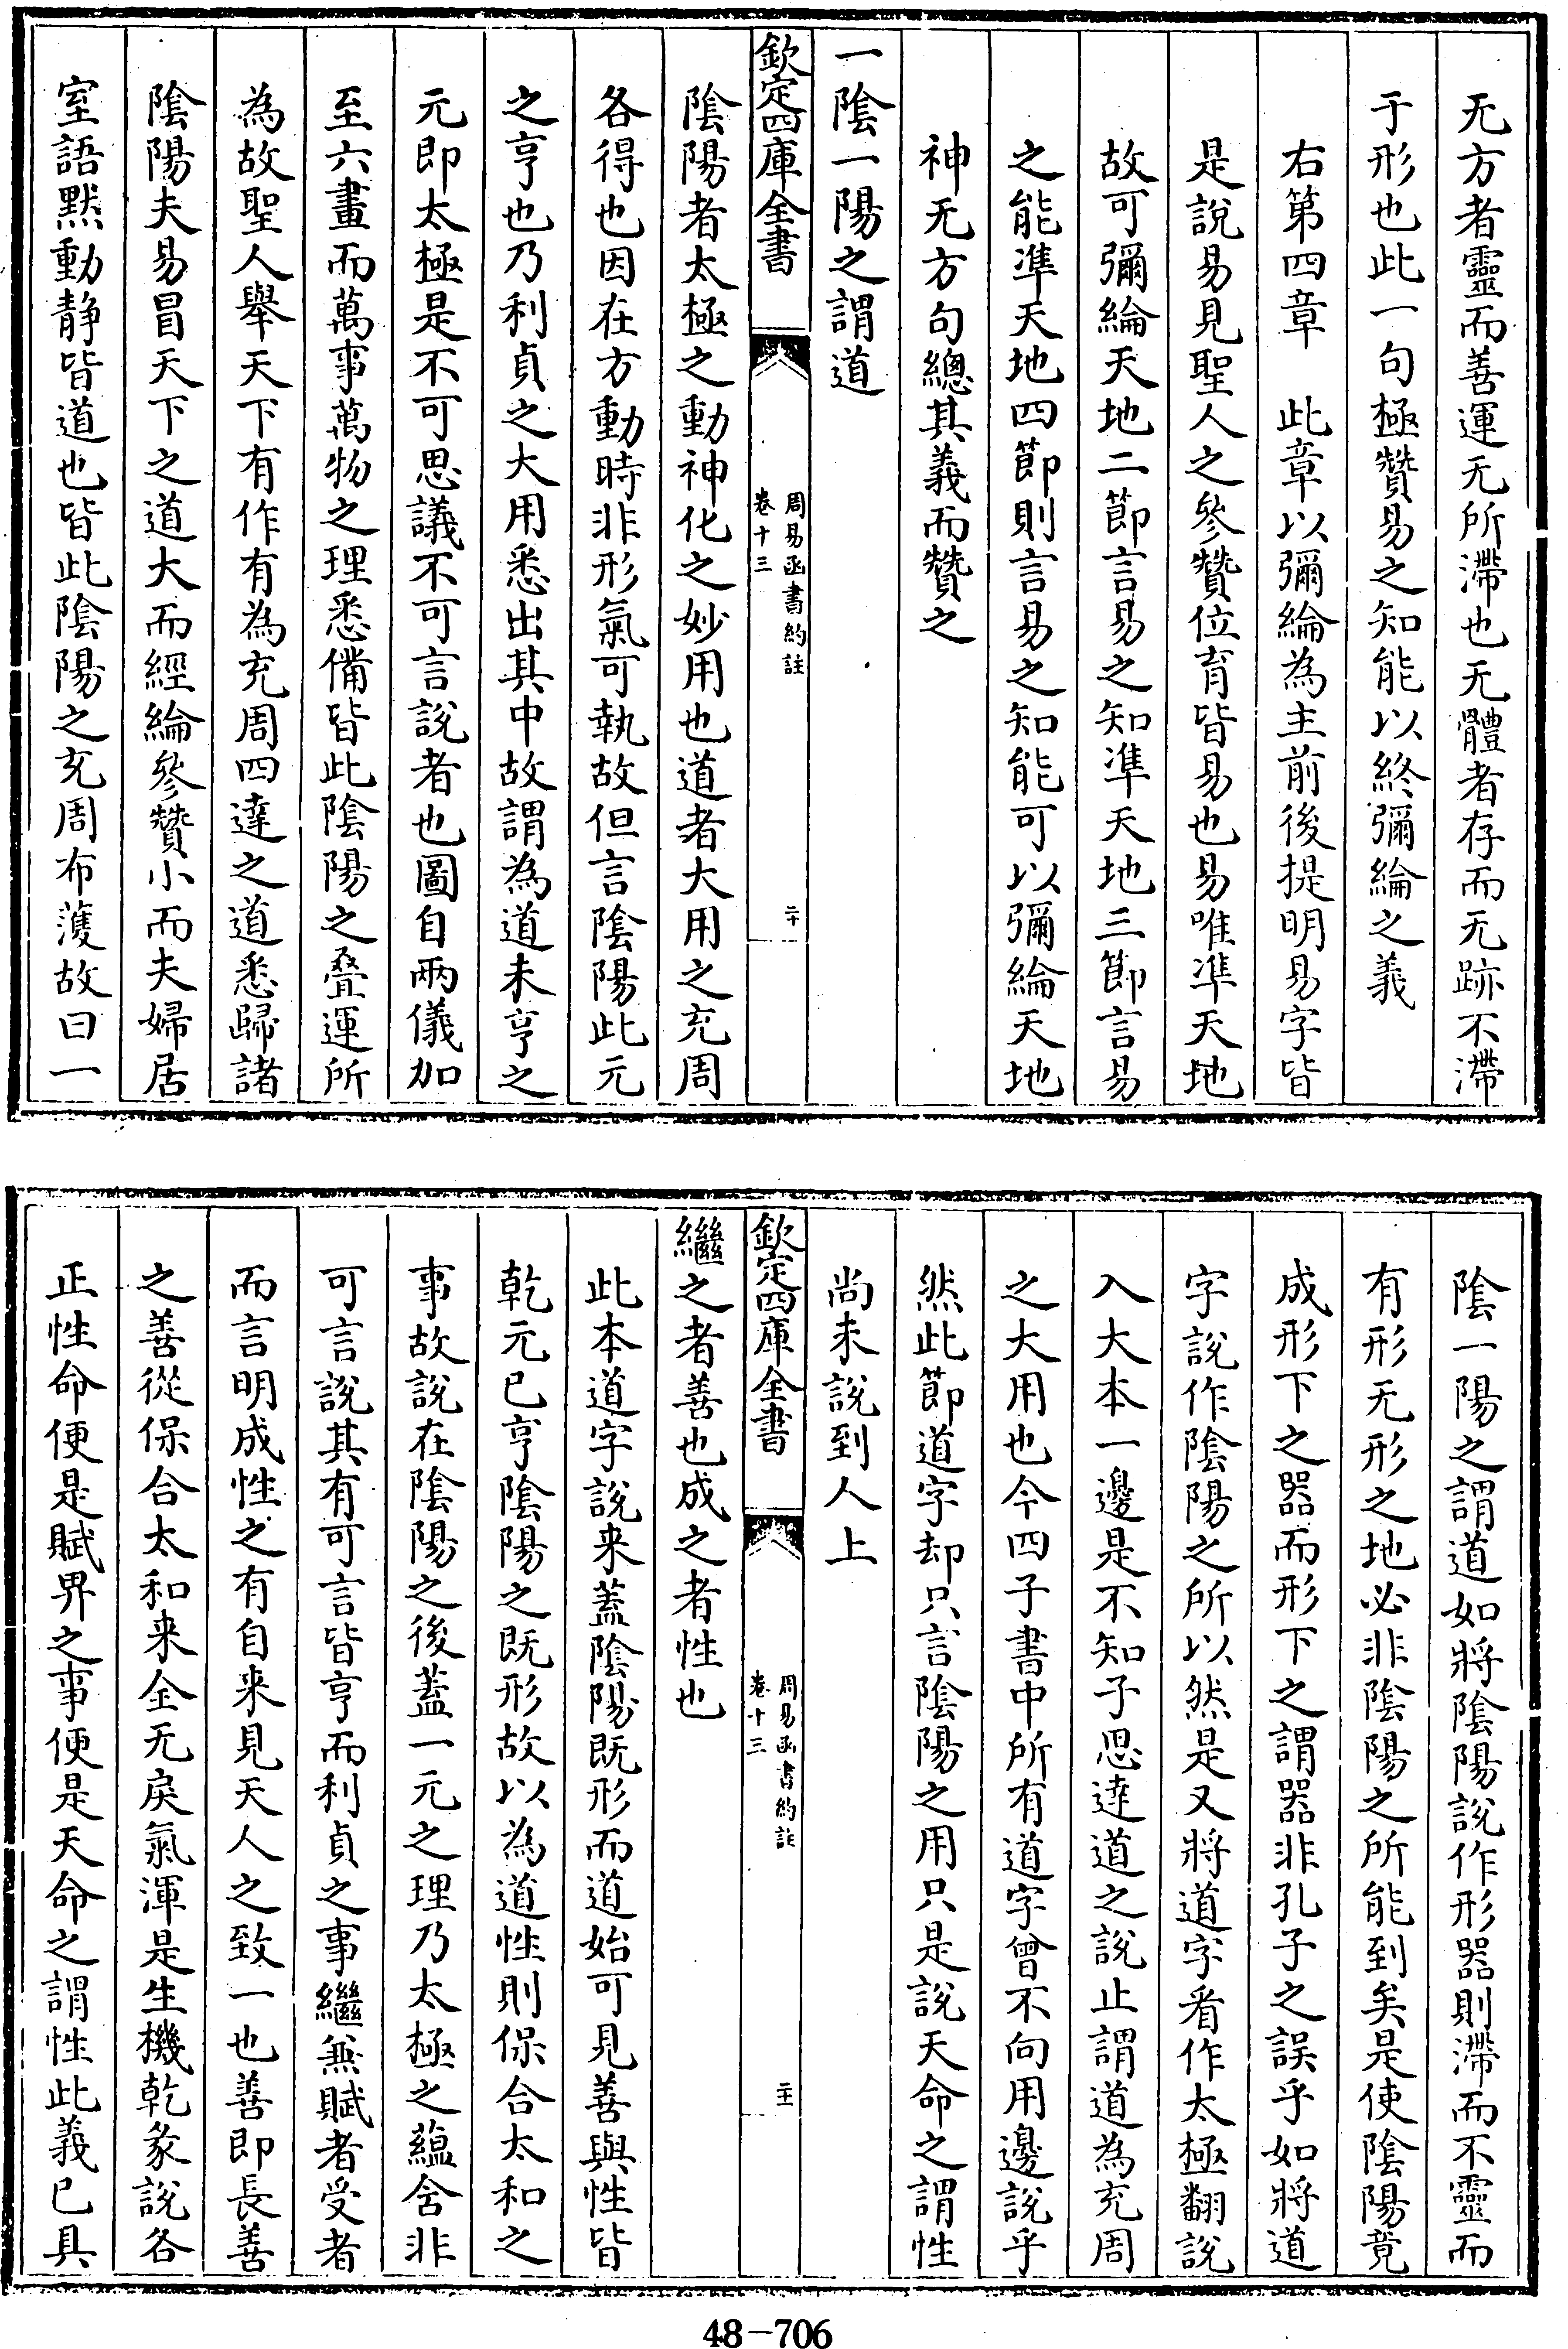 无方者靈而善運无所滯也无體者存而无跡不滯
于形也此一句極贊易之知能以終彌綸之義
右第四章　此章以彌綸為主前後提明易字皆
是說易見聖人之參贊位育皆易也易唯準天地
故可彌綸天地二節言易之知準天地三節言易
之能準天地四節則言易之知能可以彌綸天地
神无方句總其義而贊之
一陰一陽之謂道
欽定四庫全書
周易函書約註
卷十三
二十
陰陽者太極之動神化之妙用也道者大用之充周
各得也因在方動時非形氣可執故但言陰陽此元
之亨也乃利貞之大用悉出其中故謂為道未亨之
元即太極是不可思議不可言說者也圖自兩儀加
至六畫而萬事萬物之理悉備皆此陰陽之疊運所
為故聖人舉天下有作有為充周四達之道悉歸諸
陰陽夫易冒天下之道大而經綸參贊小而夫婦居
室語默動靜皆道也皆此陰陽之充周布濩故曰一
陰一陽之謂道如將陰陽說作形器則滯而不靈而
有形无形之地必非陰陽之所能到矣是使陰陽竟
成形下之器而形下之謂器非孔子之誤乎如將道
字說作陰陽之所以然是又將道字看作太極翻說
入大本一邊是不知子思達道之說止謂道為充周
之大用也今四子書中所有道字曾不向用邊說乎
然此節道字却只言陰陽之用只是說天命之謂性
尚未說到人上
欽定四庫全書
周易函書約註
卷十三
二十一
繼之者善也成之者性也
此本道字說来蓋陰陽既形而道始可見善與性皆
乾元已亨陰陽之既形故以為道性則保合太和之
事故說在陰陽之後蓋一元之理乃太極之蘊含非
可言說其有可言皆亨而利貞之事繼無賦者受者
而言明成性之有自来見天人之致一也善即長善
之善從保合太和来全无戾氣渾是生機乾彖說各
正性命便是賦畀之事便是天命之謂性此義已具
48-706